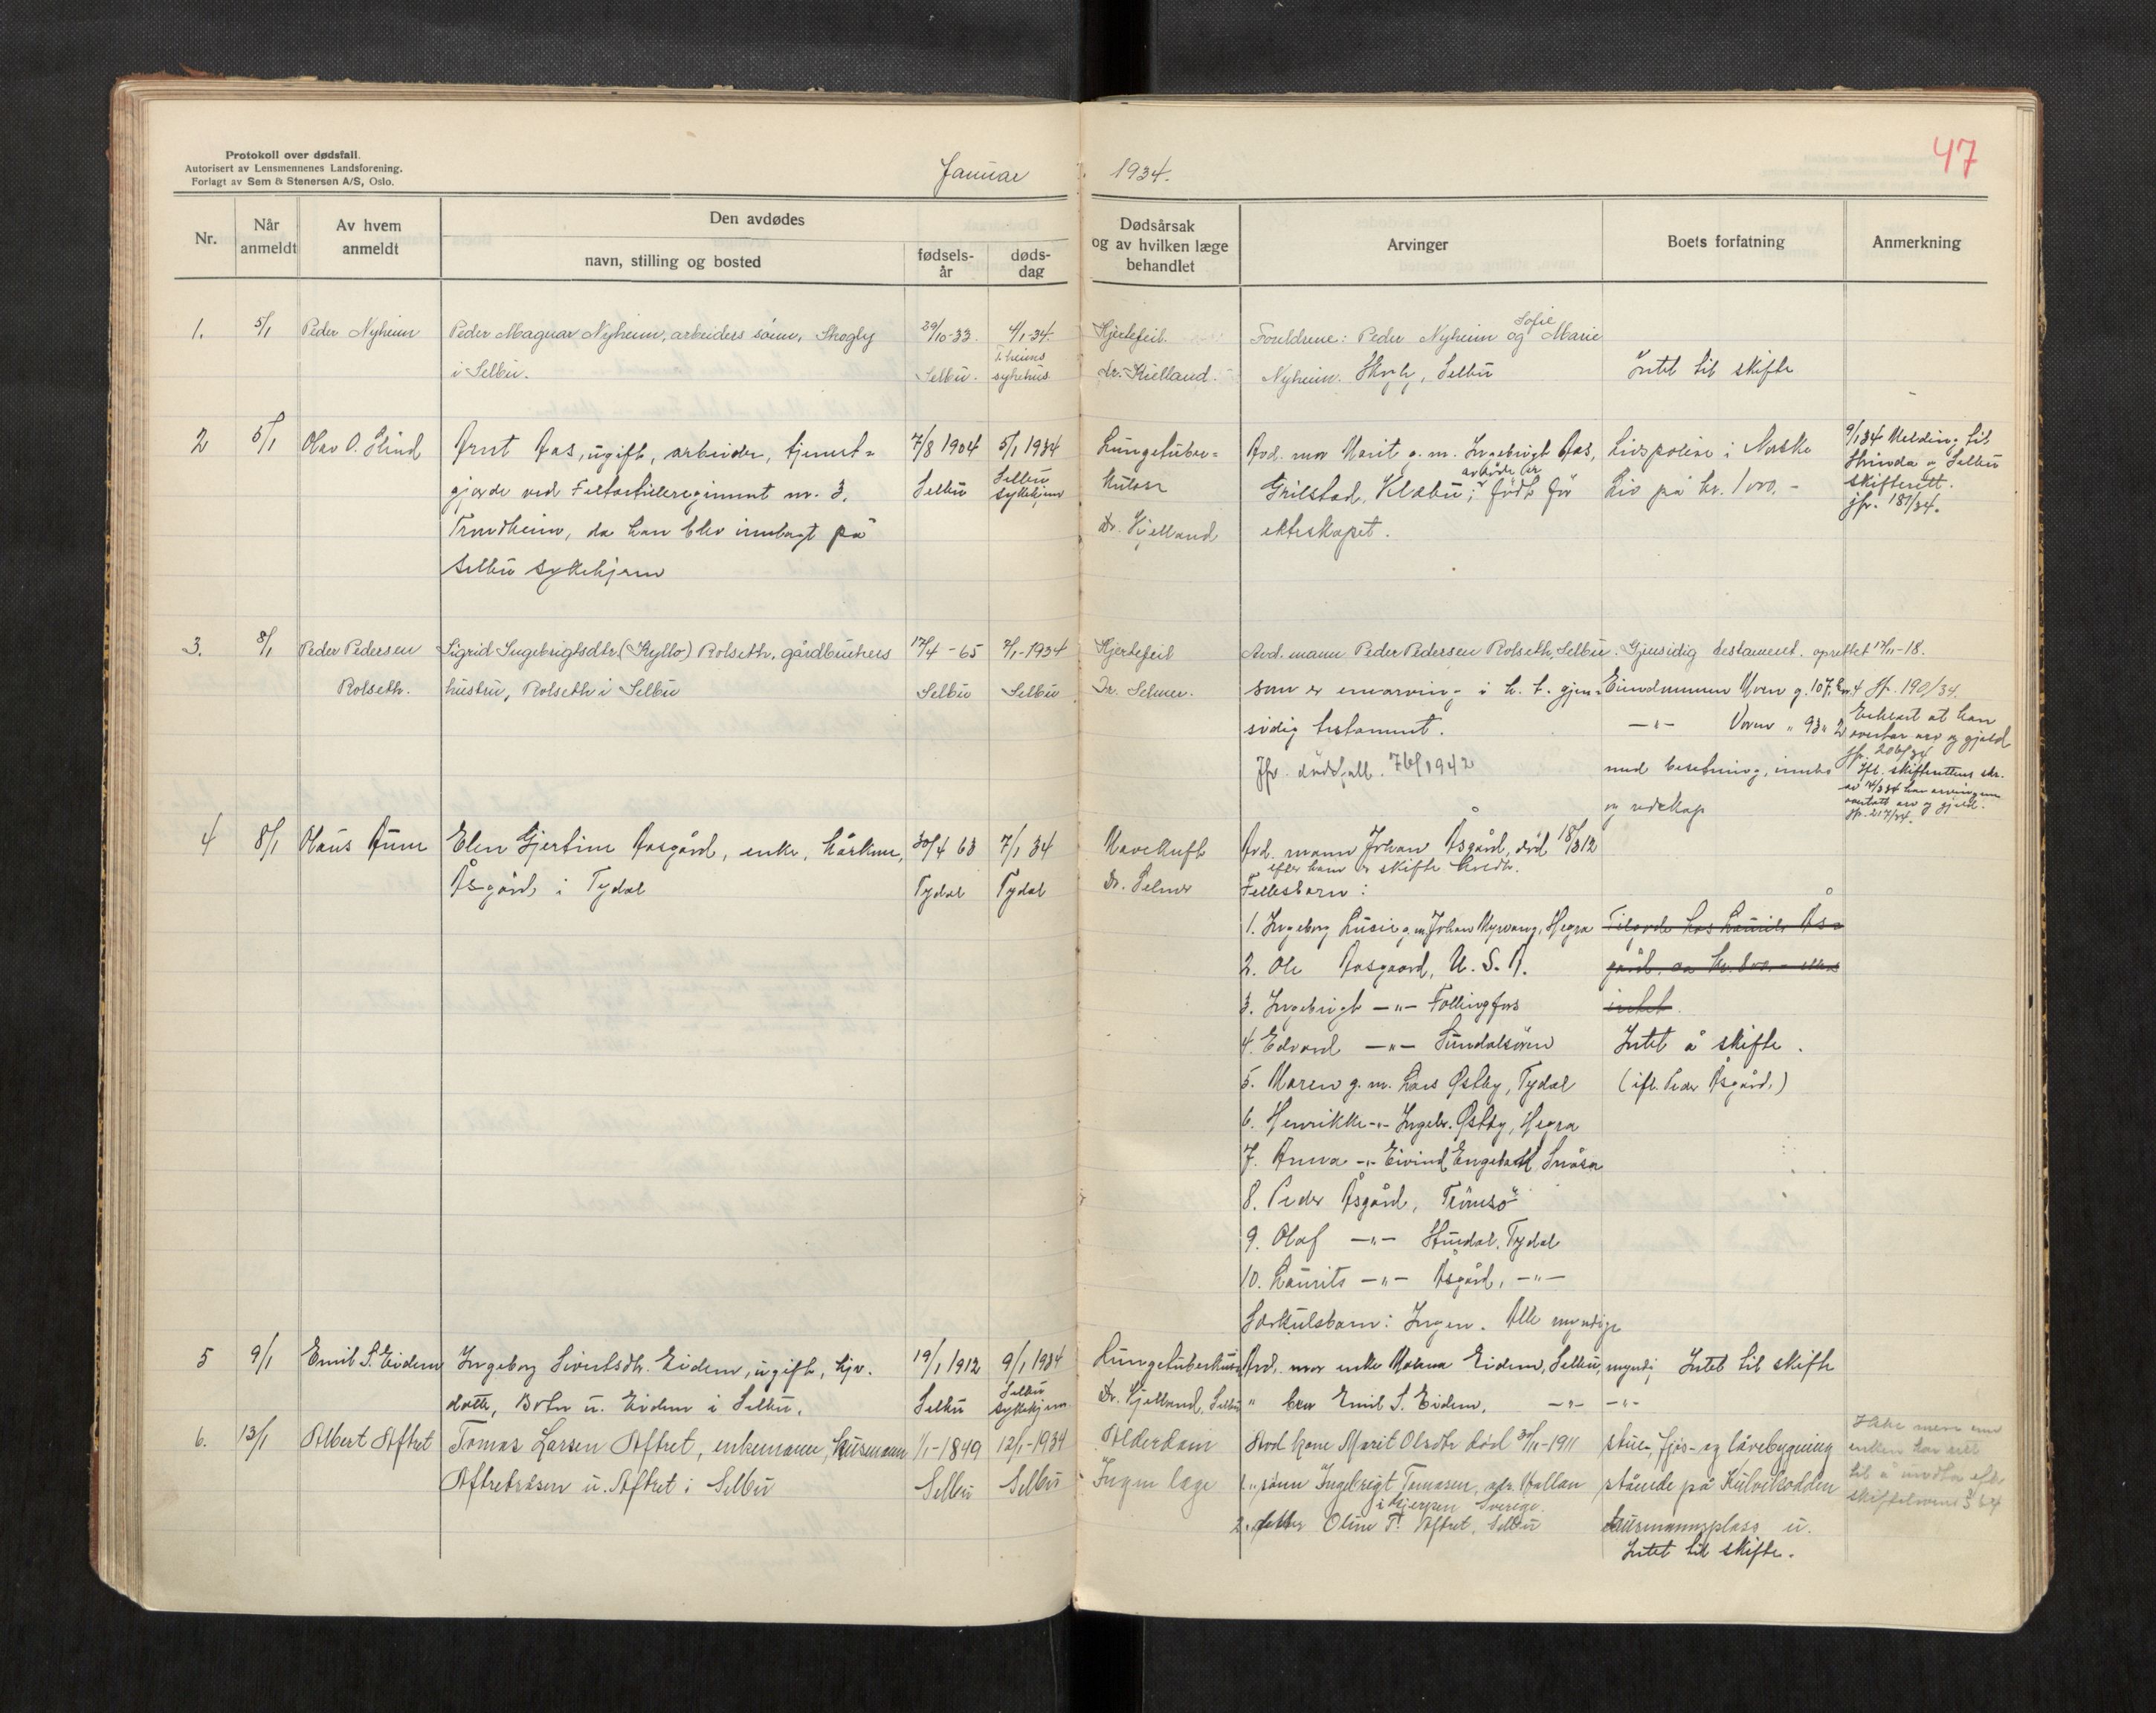 Protokoll over dødsfall.
Autorisert av Lensmennenes Landsforening.
Forlagt av Sem & Stenersen A/S, Oslo.
Januar 1934.
47
Nr. Når anmeldt Av hvem anmeldt Den avdødes navn, stilling og bosted fødselsår dødsdag Dødsårsak og av hvilken læge behandlet Arvinger Boets forfatning Anmerkning
1. 5/1 Peder Nyheim Peder Magnar Nyheim, arbeiders sönn, Skogly 29/10-33. 4/1-34. Hjertefeil. Foreldrene: Peder Nyheim og Sofie Marie
i Selbu. Selbu. T.heims sykehus Dr. Kielland. Nyheim. Selbu Intet til skifte
2 5/1 Olav O. Slind Arnt Aas, ugift, arbeider, tjenest- 7/8 1904 5/1 1934 Lungetuber- Avd. mor Marit g. m. Ingebrigt Aas, Livspolise i Norske 9/1 34 Melding til
gjorde ved Feltartilleriregiment nr. 3. Selbu Selbu sykehjem kulose Grilstad, Klæbu; avdøde er født før Liv på kr. 1000.- Strinda og Selbu skifterett.
Trondheim, da han blev innlagt på Dr. Kjelland ekteskapet. jfr. 181/34.
Selbu sykehjem
3. 8/1 Peder Pedersen Sigrid Ingebrigtsdtr. (Kyllo) Rolseth, gårdbrukers 17/4-65 7/1-1934 Hjertefeil Avd. mann Peder Pedersen Rolseth, Selbu. Gjensidig testament. oprettet 17/11-18.
Rolseth. hustru, Rolseth i Selbu Selbu Selbu Dr. Selmer. som er enearving i h. t. gjen- Eiendommen Moen g. 107, bn 4 jfr. 190/34.
sidig testament. -"- Voren " 93 " 2 Erklært at han overtar arv og gjeld
Jfr. dødsfall. 76/1942 med besetning, innbo jfr. 206/34
og redskap Ifl. skifterettens skr. av har arvingene overtatt arv og gjeld. jfr. 217/34.
4 8/1 Olaus Aune Elen Gjertine Aasgård, enke, kårkone, 30/4 63 7/1 34 Mavekreft Avd. mann Johan Åsgård, død 18/3 12
Åsgård i Tydal Tydal Tydal Dr. Selmer efter ham er skifte holdt.
Fellesbarn:
1. Ingeborg Lusie g.m. Johan Myrvang, Hegra Tilgode hos Laurits Ås-
2. Ole Aasgaard, U. S. A. gård, ca kr. 800.- ellers
3. Ingebrigt -"- Follingfoss intet.
4. Edvard -"- Sundalsøren Intet å skifte.
5. Maren g. m. Lars Østby, Tydal (ifl. Peder Åsgård.)
6. Henrikke -"- Ingebr. Østby, Hegra
7. Anna -"- Eivind Engstad Snåsa
8. Peder Åsgård, Tromsø
9. Olaf -"- Stuedal, Tydal
10. Laurits -"- Åsgård, -"-
Særkulsbarn: Ingen. Alle myndige
5 9/1 Emil S. Eidem Ingeborg Sivertsdtr. Eidem, ugift, hjv. 19/1 1912 9/1 1934 Lungetuberkulose Avd. mor enke Eidem, Selbu, myndig Intet til skifte
datter, u. Eidem i Selbu. Selbu Selbu sykehjem Dr. Kjelland, Selbu " bror Emil S. Eidem, -"- -"-
6. 13/1 Albert Aftret Tomas Larsen Aftret, enkemann, husmann 1/1-1849 12/1-1934 Alderdom Avd kone Marit Olsdtr død 30/11-1911 stue-, fjøs- og låvebygning Ikke mere enn
Aftretråsen u. Aftret i Selbu Selbu Selbu Ingen læge 1. sønn Ingebrigt Tomasen, adr. Hallan stående på Kulviksodden enken har rett
i Hjerpen Sverige. til å
2. datter Oline T. Aftret, Selbu husmannsplass u.
Intet til skifte.